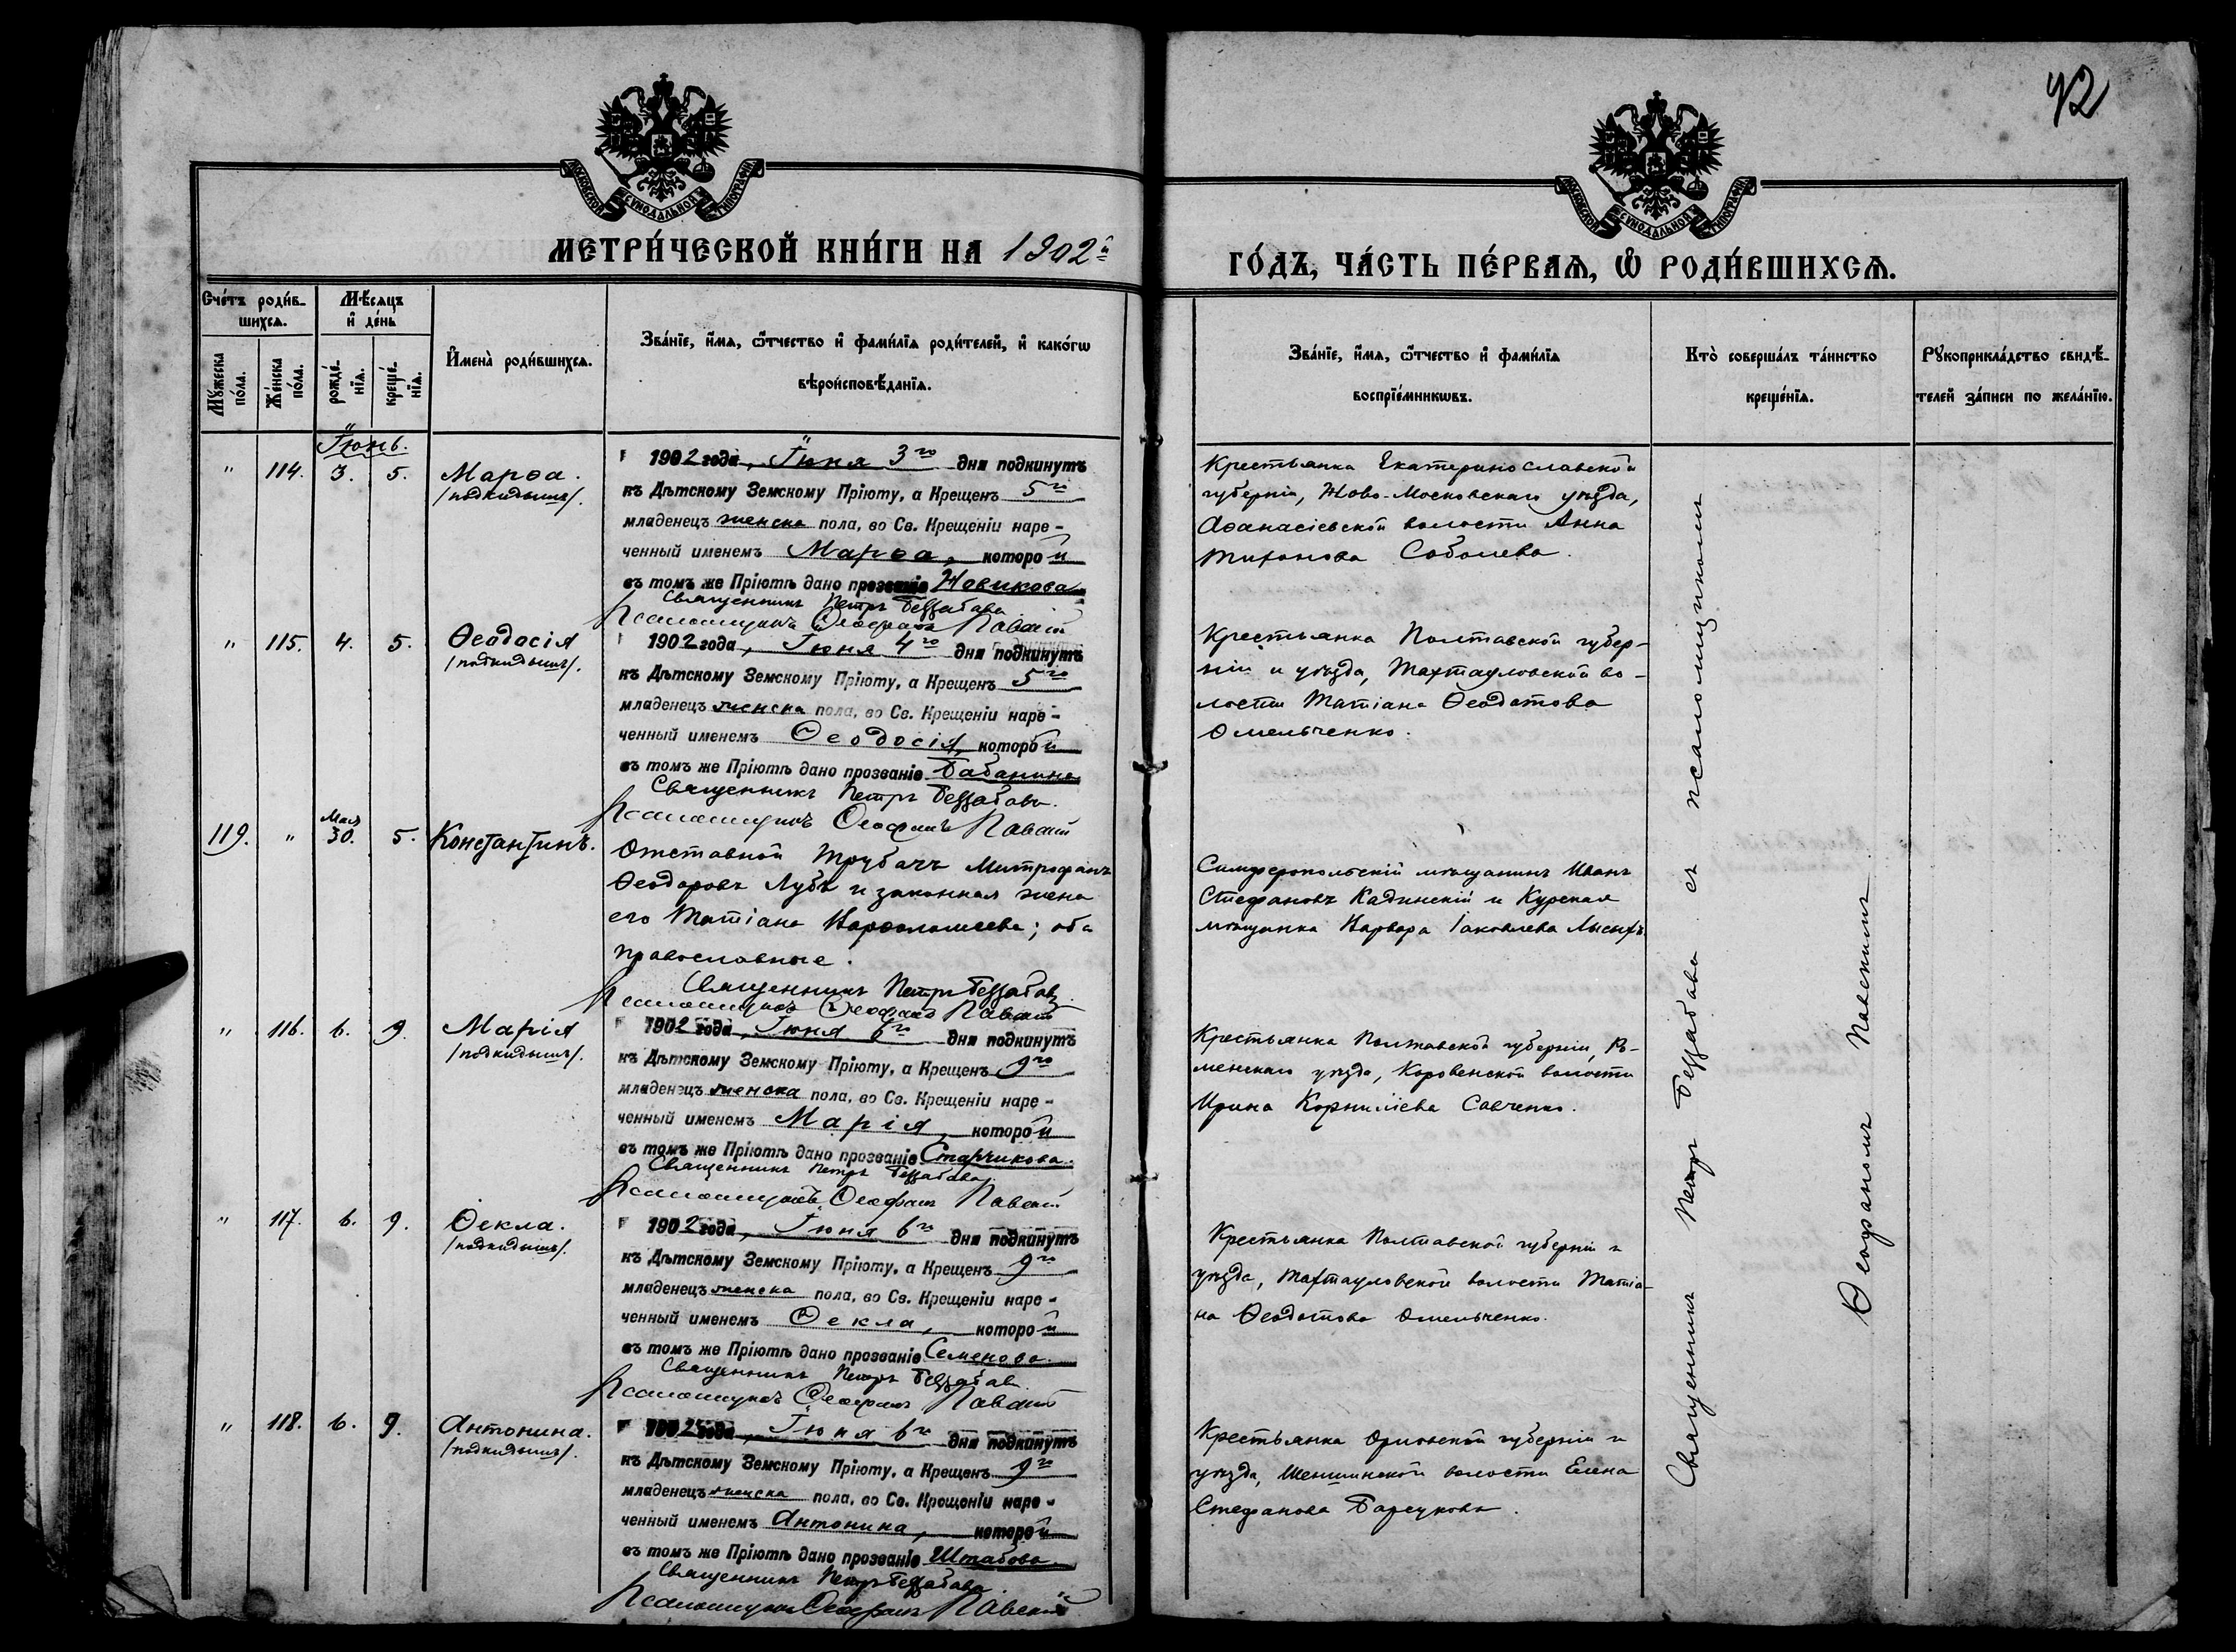 42
МОСКОВСКОЙ СУНОДАЛЬНОЙ ТИПОГРАФІИ
МОСКОВСКОЙ СУНОДАЛЬНОЙ ТИПОГРАФІИ
МЕТРИ́ЧЕСКОЙ КНИ́ГИ НА 1902й
ГО́ДЪ, ЧА́СТЬ ПЕ́РВАЯ, Ѡ РОДИ́ВШИХСЯ.
Сче́тъ роди́в-
шихся.
Мѣ́сяцъ
и де́нь
Мꙋ́жеска
по́ла.
Же́нска
по́ла.
рожде́-
нїя.
креще́-
нїя.
И҆мена̀ роди́вшихся.
Зва́нїе, и҆́мя, ѻ҆́тчество и҆ фами́лїя роди́телей, и҆ како́гѡ
вѣроисповѣ́данїя.
Зва́нїе, и҆́мя, ѻ҆́тчество и҆ фами́лїя
воспрїе́мникѡвъ.
Кто̀ соверша́лъ та́инство
креще́нїя.
Рꙋкоприкла́дство свидѣ́-
телей за́писи по жела́нїю.
Іюнь.
" 114. 3. 5. Марѳа.
/подкидышъ/.
1902 года, Іюня 3го дня подкинутъ
къ Дѣтскому Земскому Пріюту, а Крещенъ 5го
младенецъ женска пола, во Св. Крещеніи наре-
ченный именемъ Марѳа, которой
въ томъ же Пріютѣ дано прозваніе Новикова
Священникъ Петръ
Псаломщикъ Ѳеофанъ Павскій
Крестьянка Екатеринославской
губерніи, Ново-Московскаго уѣзда,
Аѳанасіевской волости Анна
Тихонова Соболева.
" 115. 4. 5. Ѳеодосія
/подкидышъ/.
1902 года, Іюня 4го дня подкинутъ
къ Дѣтскому Земскому Пріюту, а Крещенъ 5го
младенецъ женска пола, во Св. Крещеніи наре-
ченный именемъ Ѳеодосія, которой
въ томъ же Пріютѣ дано прозваніе Бабанина
Священникъ Петръ
Псаломщикъ Ѳеофанъ Павскій
Крестьянка Полтавской губер-
ніи и уѣзда, Тахтауловской во-
лости Татіана Ѳеодотова
Омельченко.
119. " Мая 30. 5. Константинъ.
Отставной трубачъ Митрофанъ
Ѳеодоровъ Лубъ и законная жена
его Татіана Варѳоломеева; оба
православные.
Священникъ Петръ
Псаломщикъ Ѳеофанъ Павскій
Симферопольскій мѣщанинъ Иванъ
Стефановъ Кадинскій и Курская
мѣщанка Варвара Іаковлева Лысыхъ.
" 116. 6. 9. Марія
/подкидышъ/.
1902 года, Іюня 6го дня подкинутъ
къ Дѣтскому Земскому Пріюту, а Крещенъ 9го
младенецъ женска пола, во Св. Крещеніи наре-
ченный именемъ Марія, которой
въ томъ же Пріютѣ дано прозваніе Старчикова.
Священникъ Петръ
Псаломщикъ Ѳеофанъ Павскій
Крестьянка Полтавской губерніи, Ро-
менскаго уѣзда, Коровенской волости
Ирина Корниліева Савченко.
" 117. 6. 9. Ѳекла.
/подкидышъ/.
1902 года, Іюня 6го дня подкинутъ
къ Дѣтскому Земскому Пріюту, а Крещенъ 9го
младенецъ женска пола, во Св. Крещеніи наре-
ченный именемъ Ѳекла, которой
въ томъ же Пріютѣ дано прозваніе Семенова.
Священникъ Петръ
Псаломщикъ Ѳеофанъ Павскій
Крестьянка Полтавской губерніи и
уѣзда, Тахтауловской волости Татіа-
на Ѳеодотова Омельченко.
" 118. 6. 9. Антонина.
/подкидышъ/.
1902 года, Іюня 6го дня подкинутъ
къ Дѣтскому Земскому Пріюту, а Крещенъ 9го
младенецъ женска пола, во Св. Крещеніи наре-
ченный именемъ Антонина, которой
въ томъ же Пріютѣ дано прозваніе Штабова
Священникъ Петръ
Псаломщикъ Ѳеофанъ Павскій
Крестьянка Орловской губерніи и
уѣзда, волости Елена
Стефанова Барсукова.
Священникъ Петръ съ псаломщикомъ
Ѳеофаномъ Павскимъ